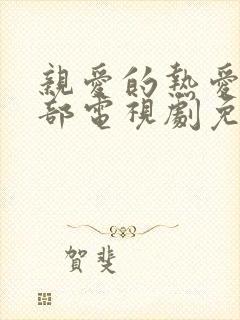 親愛的熱愛
部電視劇免
賀斐